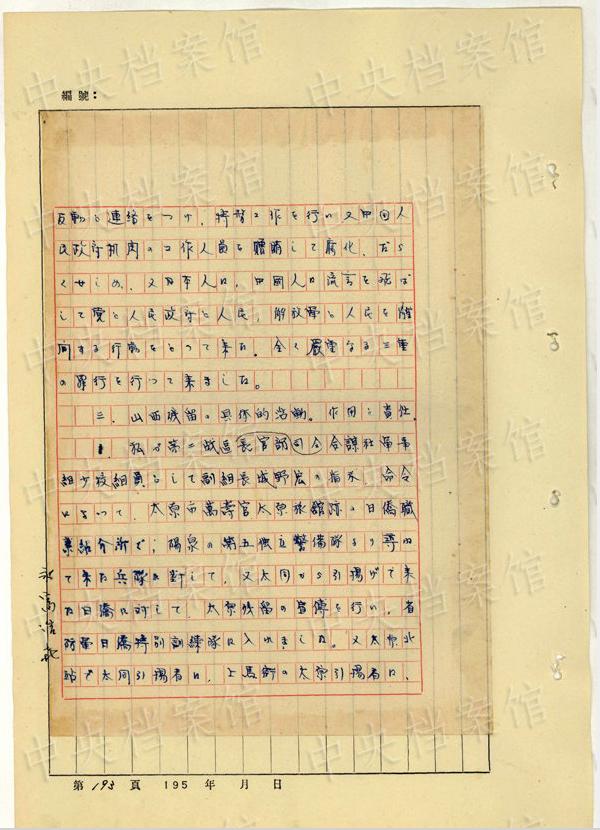 編號：
反動と連絡をつけ、特務工作を行い又中国人
民政府机関の工作人員を賭賄して腐化、だら
くせしめ、又日本人は、中国人に流言を飛ば
して党と人民政府と人民、解放軍と人民を離
間する行動をとつて来た。全く厳重なる三重
の罪行を行つて来ました。
三、山西残留の具体的活動。作用と責任
1 私が第二战區長官部司令合謀社軍事
組少校組員として副組長城野宏の指示、命令
によつて、太原市萬壽宮太原旅館跡の日僑職
業紹介所で、陽泉の第五独立警備隊より
て来た兵隊に対して、又大同から引揚げて来
た日僑に対して、太原残留の宣傳を行い、省
防軍日僑特別訓練隊に入れました。又太原北
站で大同引揚者に、上馬街の太原引揚者に、
永富浩
第193頁 195 年 月 日
中央档案馆